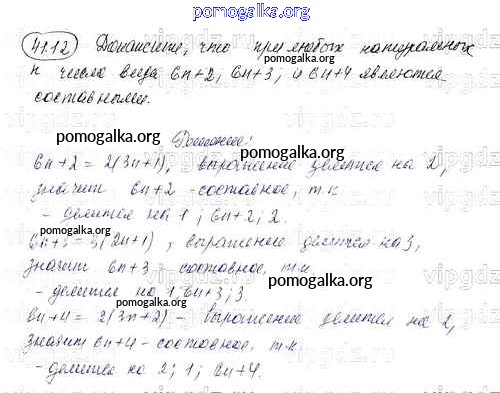 pomogalka.org
41.12 Докажите, что при любых натуральных
n числа вида 6n+2, 6n+3, и 6n+4 являются
составными.
pomogalka.org
pomogalka.org
Решение:
6n+2 = 2(3n+1), выражение делится на 2,
значит 6n+2 - составное, т.к
pomogalka.org
- делится на 1; 6n+2; 2.
6n+3 = 3(2n+1), выражение делится на 3,
pomogalka.org
значит 6n+3 - составное, т.к.
- делится на 1; 6n+3; 3.
pomogalka.org
6n+4 = 2(3n+2) - выражение делится на 2,
значит 6n+4 - составное, т.к.
- делится на 2; 1; 6n+4.
pomogalka.org